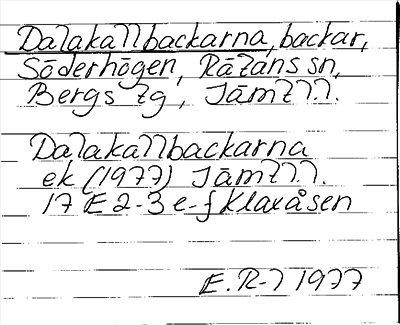 Dalakallbackarna, backar,
Söderhögen, Rätans sn,
Bergs tg, Jämtl.l.
Dalakallbackarna
ek (1977) Jämtl.l.
17 E 2-3 e-f Klaxåsen
E.R-l 1977